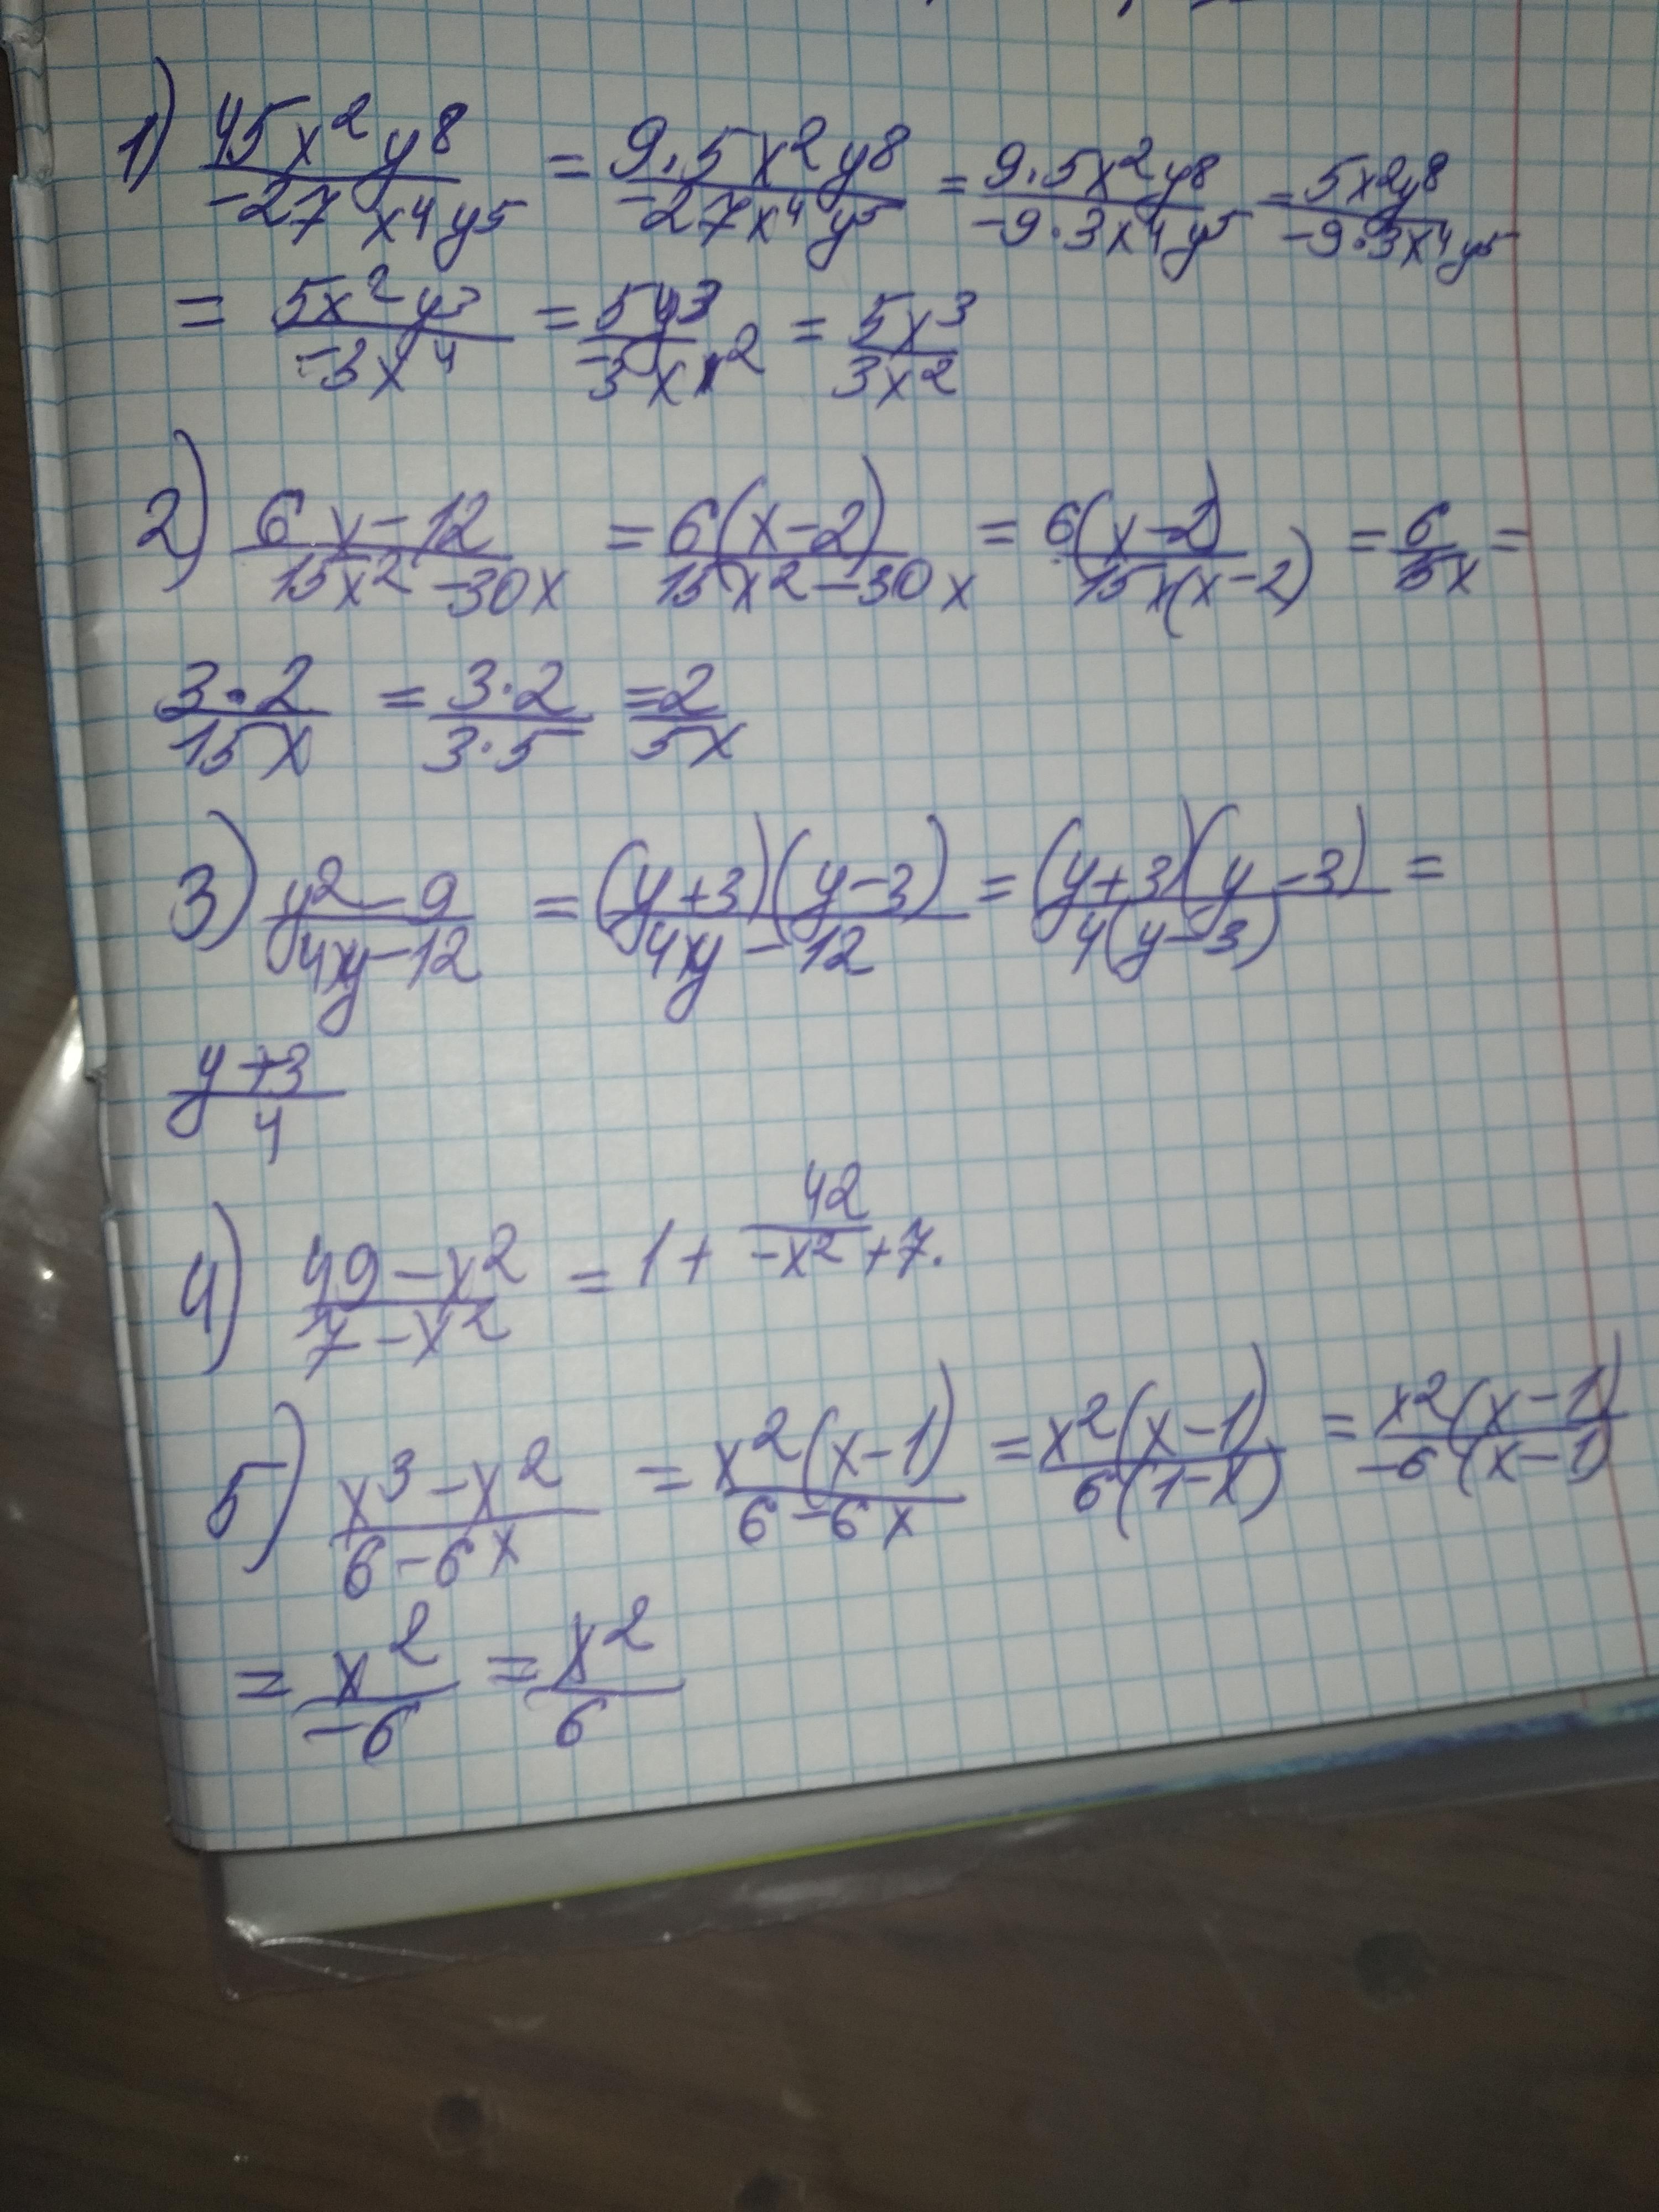 1) 45x²y⁸/-27x⁴y⁵ = 9·5x²y⁸/-27x⁴y⁵ = 9·5x²y⁸/-9·3x⁴y⁵ = 5x²y⁸/-9·3x⁴y⁵
= 5x²y³/-3x⁴ = 5y³/-3x² = 5x³/3x²
2) 6x-12/15x²-30x = 6(x-2)/15x²-30x = 6(x-2)/15x(x-2) = 6/15x =
3·2/15x = 3·2/3·5 = 2/5x
3) y²-9/4xy-12 = (y+3)(y-3)/4xy-12 = (y+3)(y-3)/4(y-3) =
y+3/4
4) 49-x²/7-x² = 1+ 42/-x²+7.
5) x³-x²/6-6x = x²(x-1)/6-6x = x²(x-1)/6(1-x) = x²(x-1)/-6(x-1)
= x²/-6 = x²/6